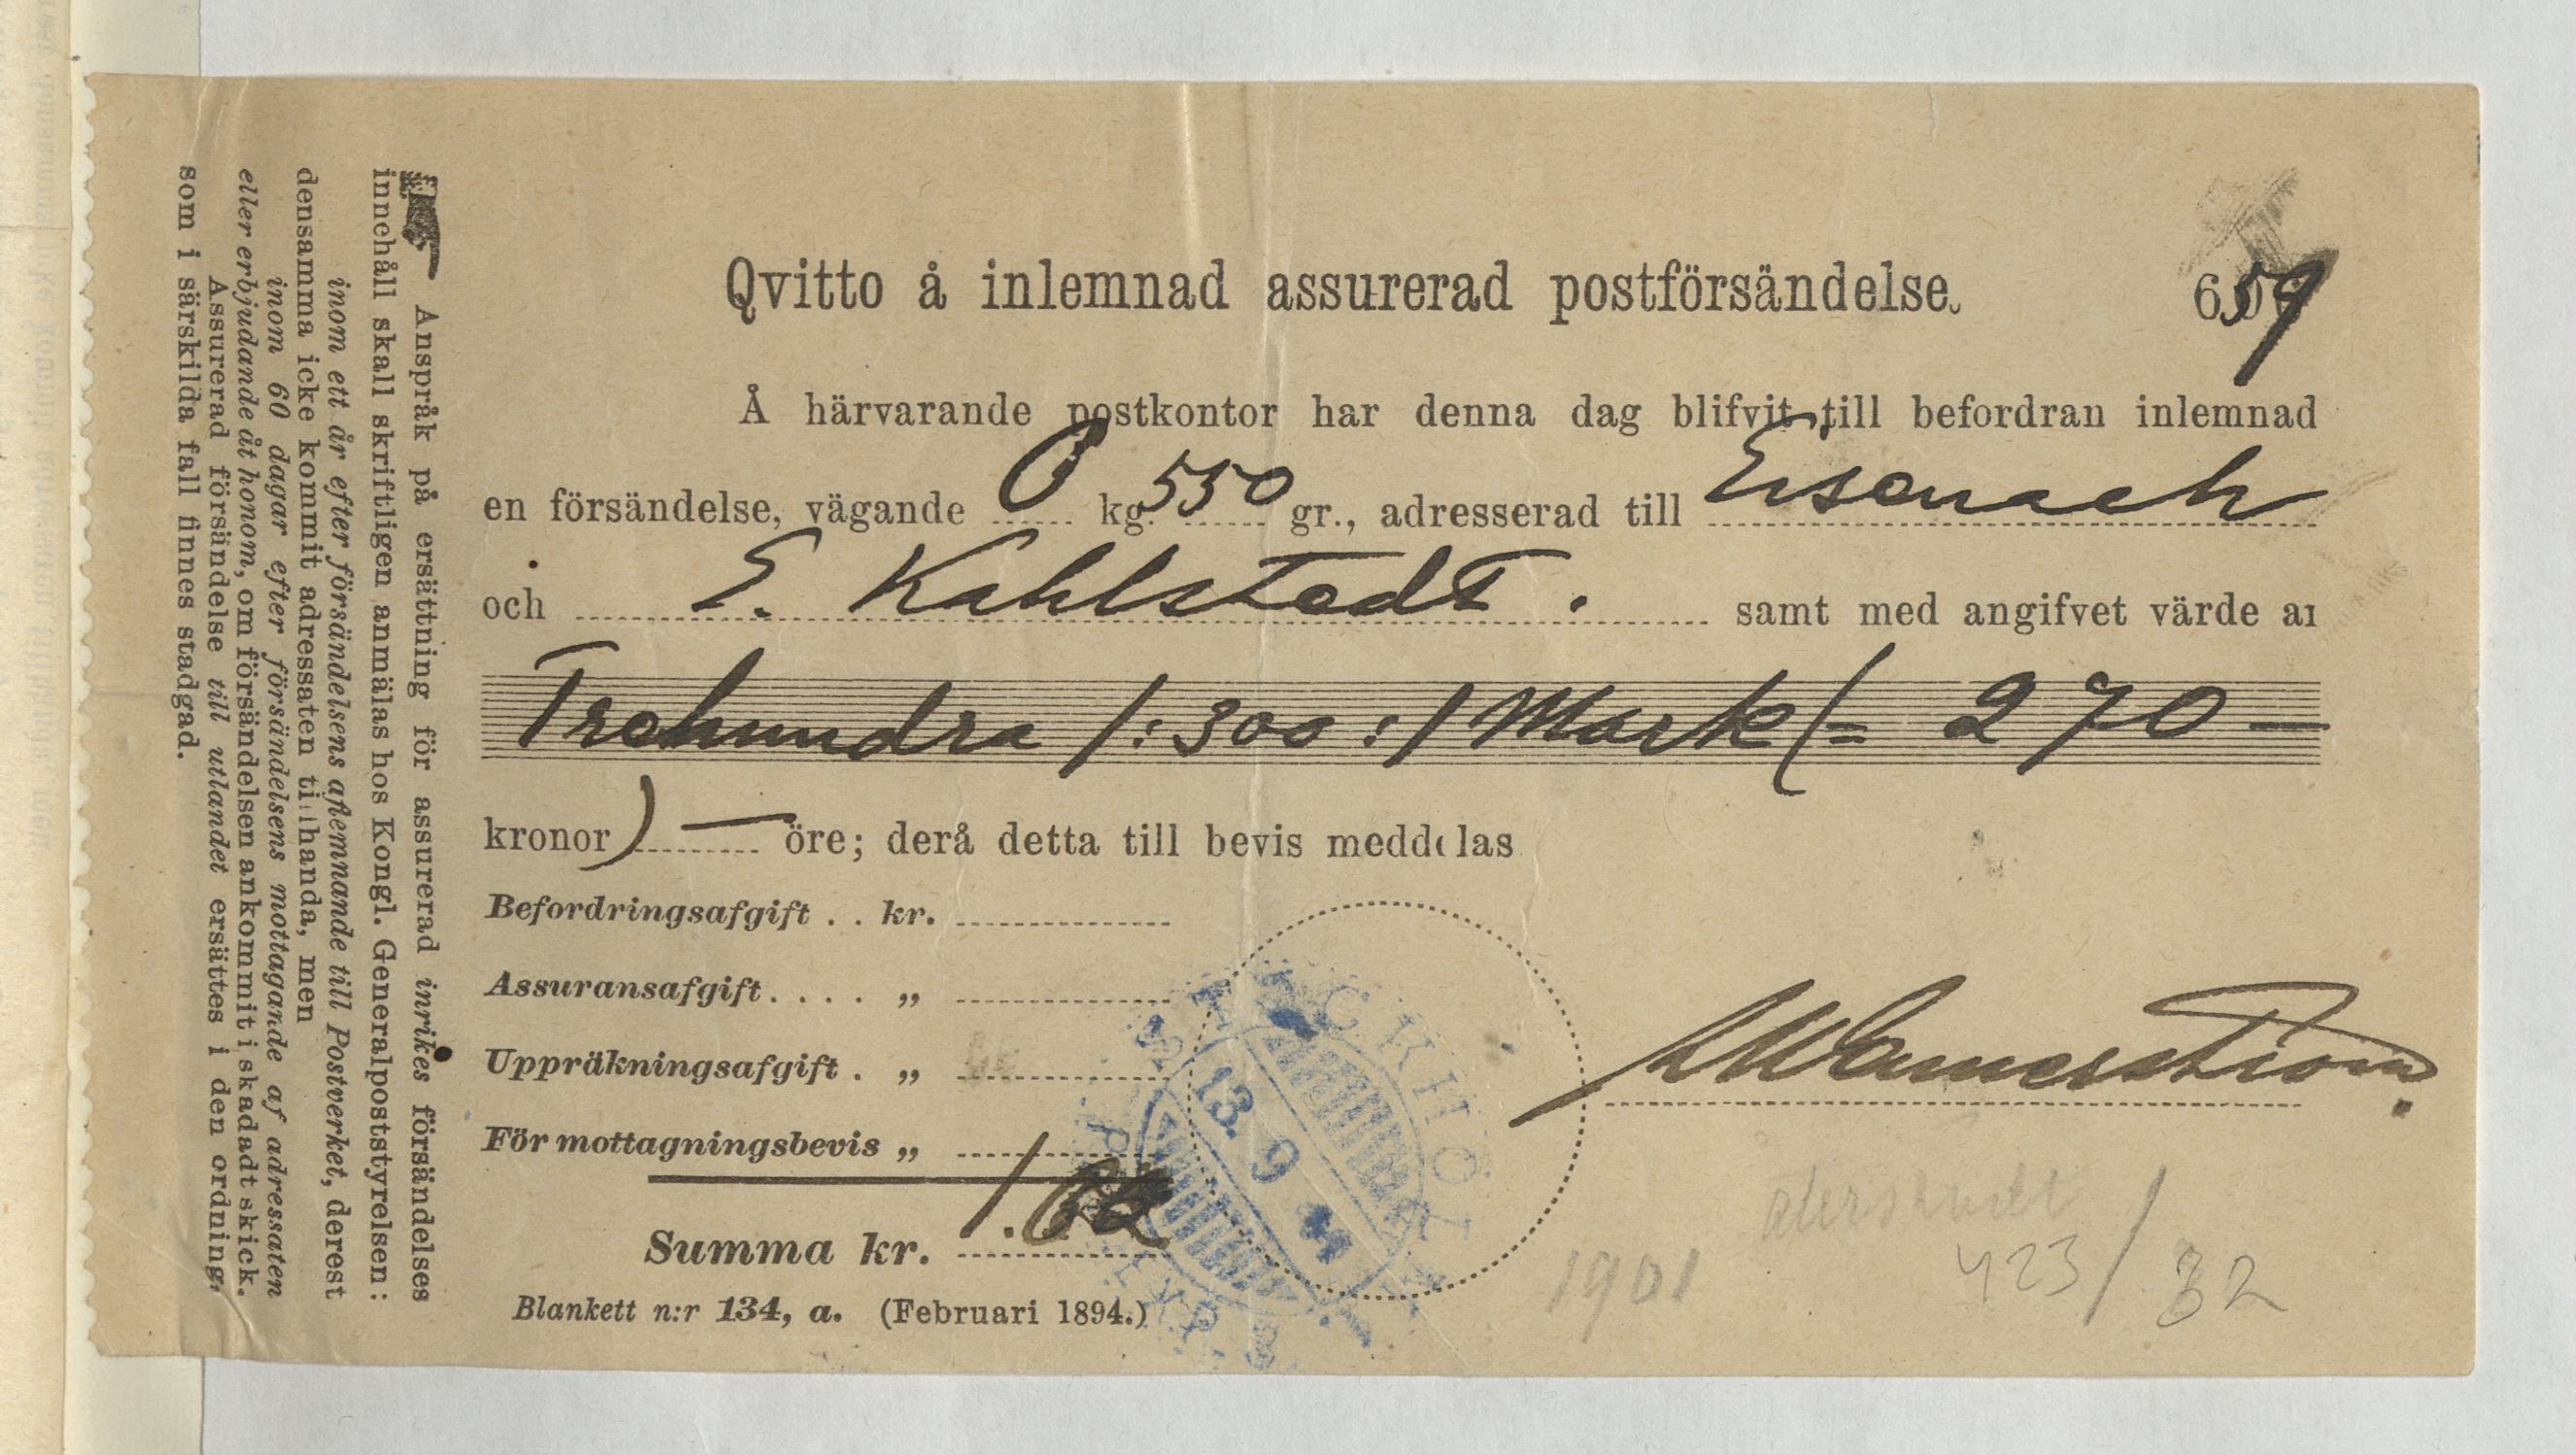 Qvitto å inlemnad assurerad postförsändelse.
Å härvarande postkontor har denna dag blifvit till befordran inlemnad
en försändelse, vägande 0 kg. 550 gr., adresserad till Eisenach
och E. Kahlstedt. samt med angifvet värde af
Trehundra /:300:/ Mark (= 270 —
kronor) — öre; derå detta till bevis meddelas
Befordringsafgift . . kr.
Assuransafgift . . . . „
Uppräkningsafgift . „
För mottagningsbevis „
Summa kr. 1.
Blankett n:r 134, a. (Februari 1894.)
STOCKHOLM
13. 9
1901
423/32
Anspråk på ersättning för assurerad inrikes försändelses
innehåll skall skriftligen anmälas hos Kongl. Generalpoststyrelsen:
inom ett år efter försändelsens aflemnande till Postverket, derest
densamma icke kommit adressaten tillhanda, men
inom 60 dagar efter försändelsens mottagande af adressaten
eller erbjudande åt honom, om försändelsen ankommit i skadadt skick.
Assurerad försändelse till utlandet ersättes i den ordning,
som i särskilda fall finnes stadgad.